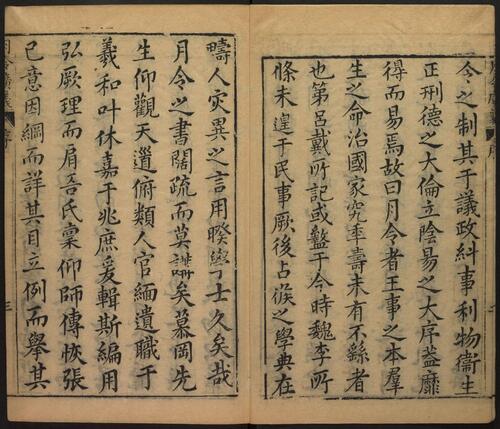 令之制其于議政糾事利物衞生
正刑德之大倫立陰昜之大序葢靡
得而易焉故曰月令者王事之本羣
生之命治國家究年壽未有不繇者
也第呂戴所記或盭于今時魏李所
條未遑于民事厥後占𠋫之學典在
疇人灾異之言用暌學士久矣哉
月令之書闊疏而莫講矣慕岡先
生仰觀天道俯類人官緬遺職于
羲和叶休嘉于兆庶爰輯斯編用
弘厥理而肩吾氏稟仰師傳恢張
已意因綱而詳其目立例而舉其